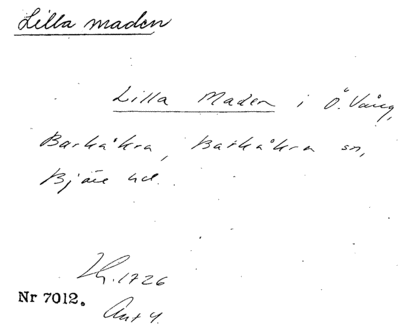 Lilla maden
Lilla Maden i Ö. Vång,
Barkåkra, Barkåkra sn,
Bjäre hd.
Lh. 1726
Nr 7012.
Ant 4.